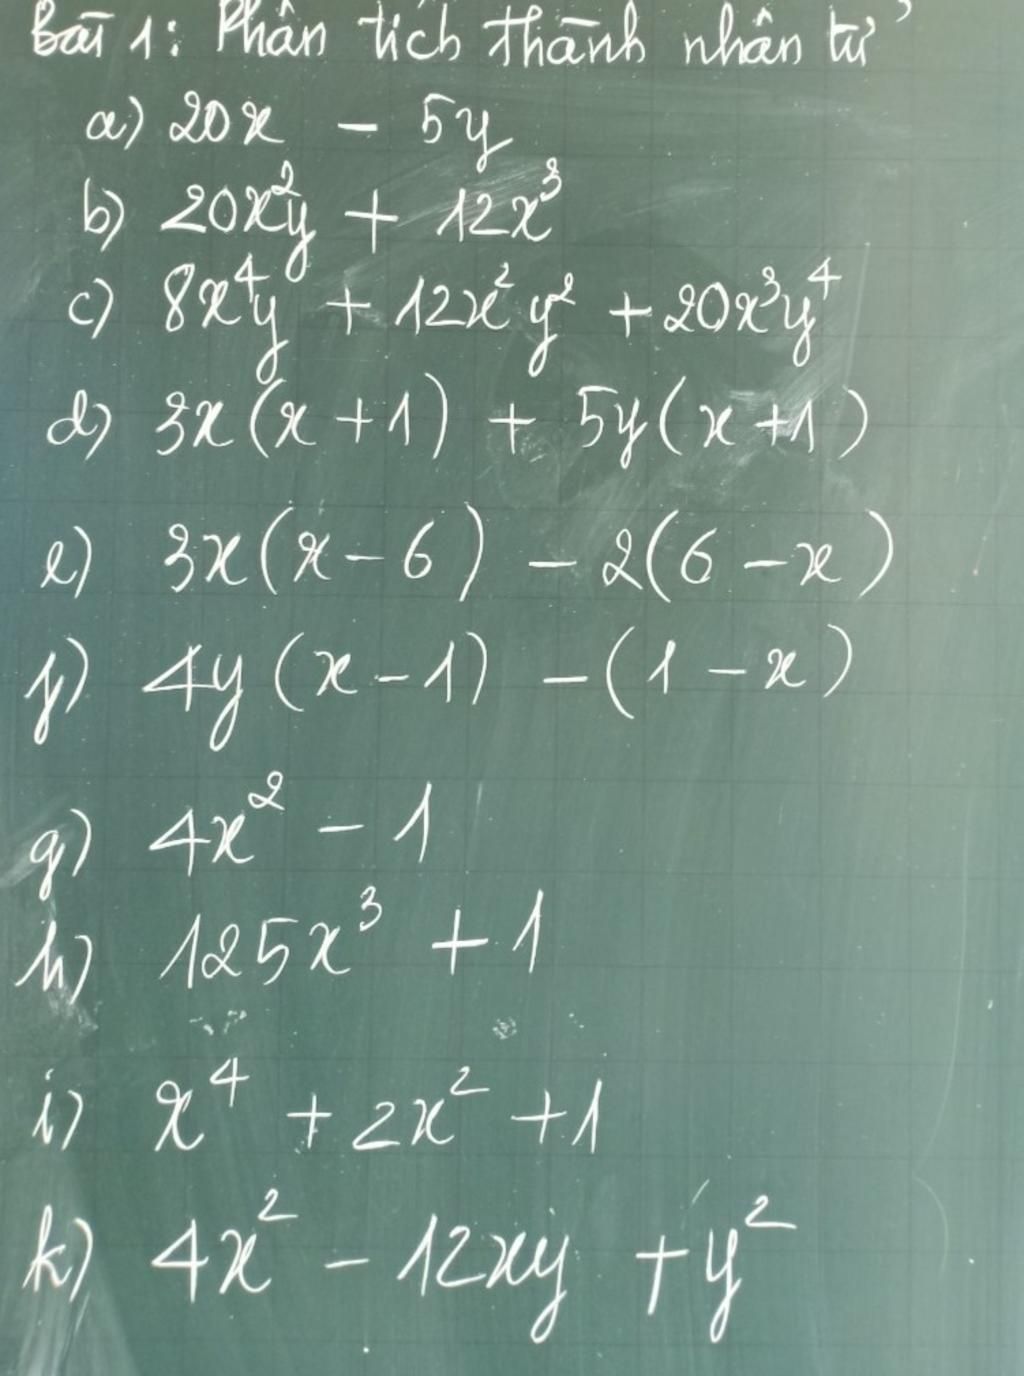 Bài 1: Phân tích thành nhân tử
a) 20x - 5y
b) 20x²y + 12x³
c) 8x⁴y + 12x²y² + 20x³y⁴
d) 3x(x + 1) + 5y(x + 1)
e) 3x(x - 6) - 2(6 - x)
f) 4y(x - 1) - (1 - x)
g) 4x² - 1
h) 125x³ + 1
i) x⁴ + 2x² + 1
k) 4x² - 12xy + y²